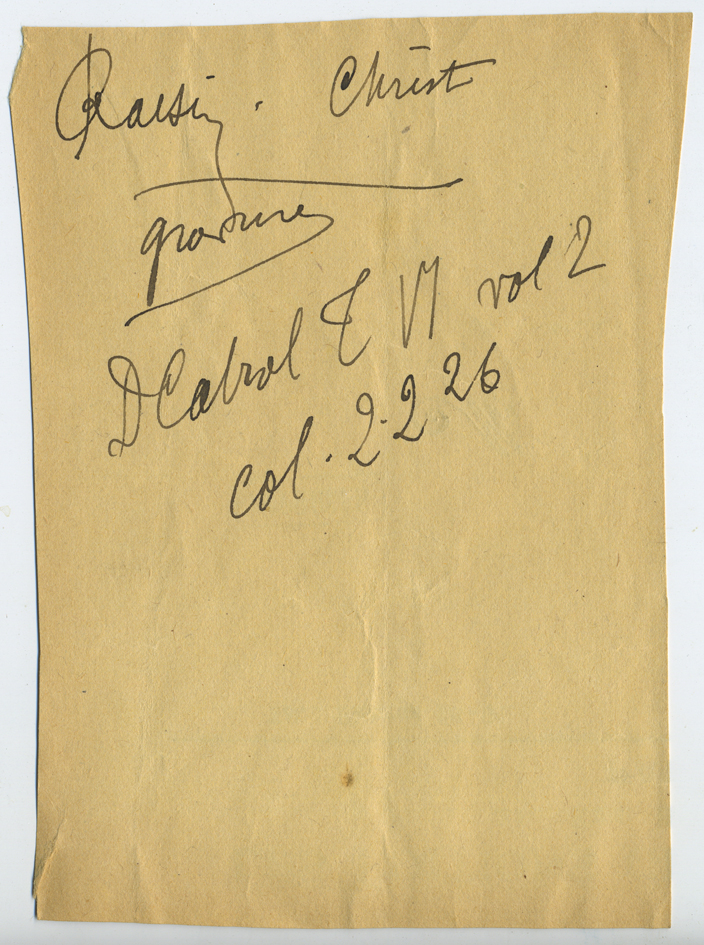 Raisin . Christ
gravure
D Cabrol T VI vol 2
col. 2.2 26